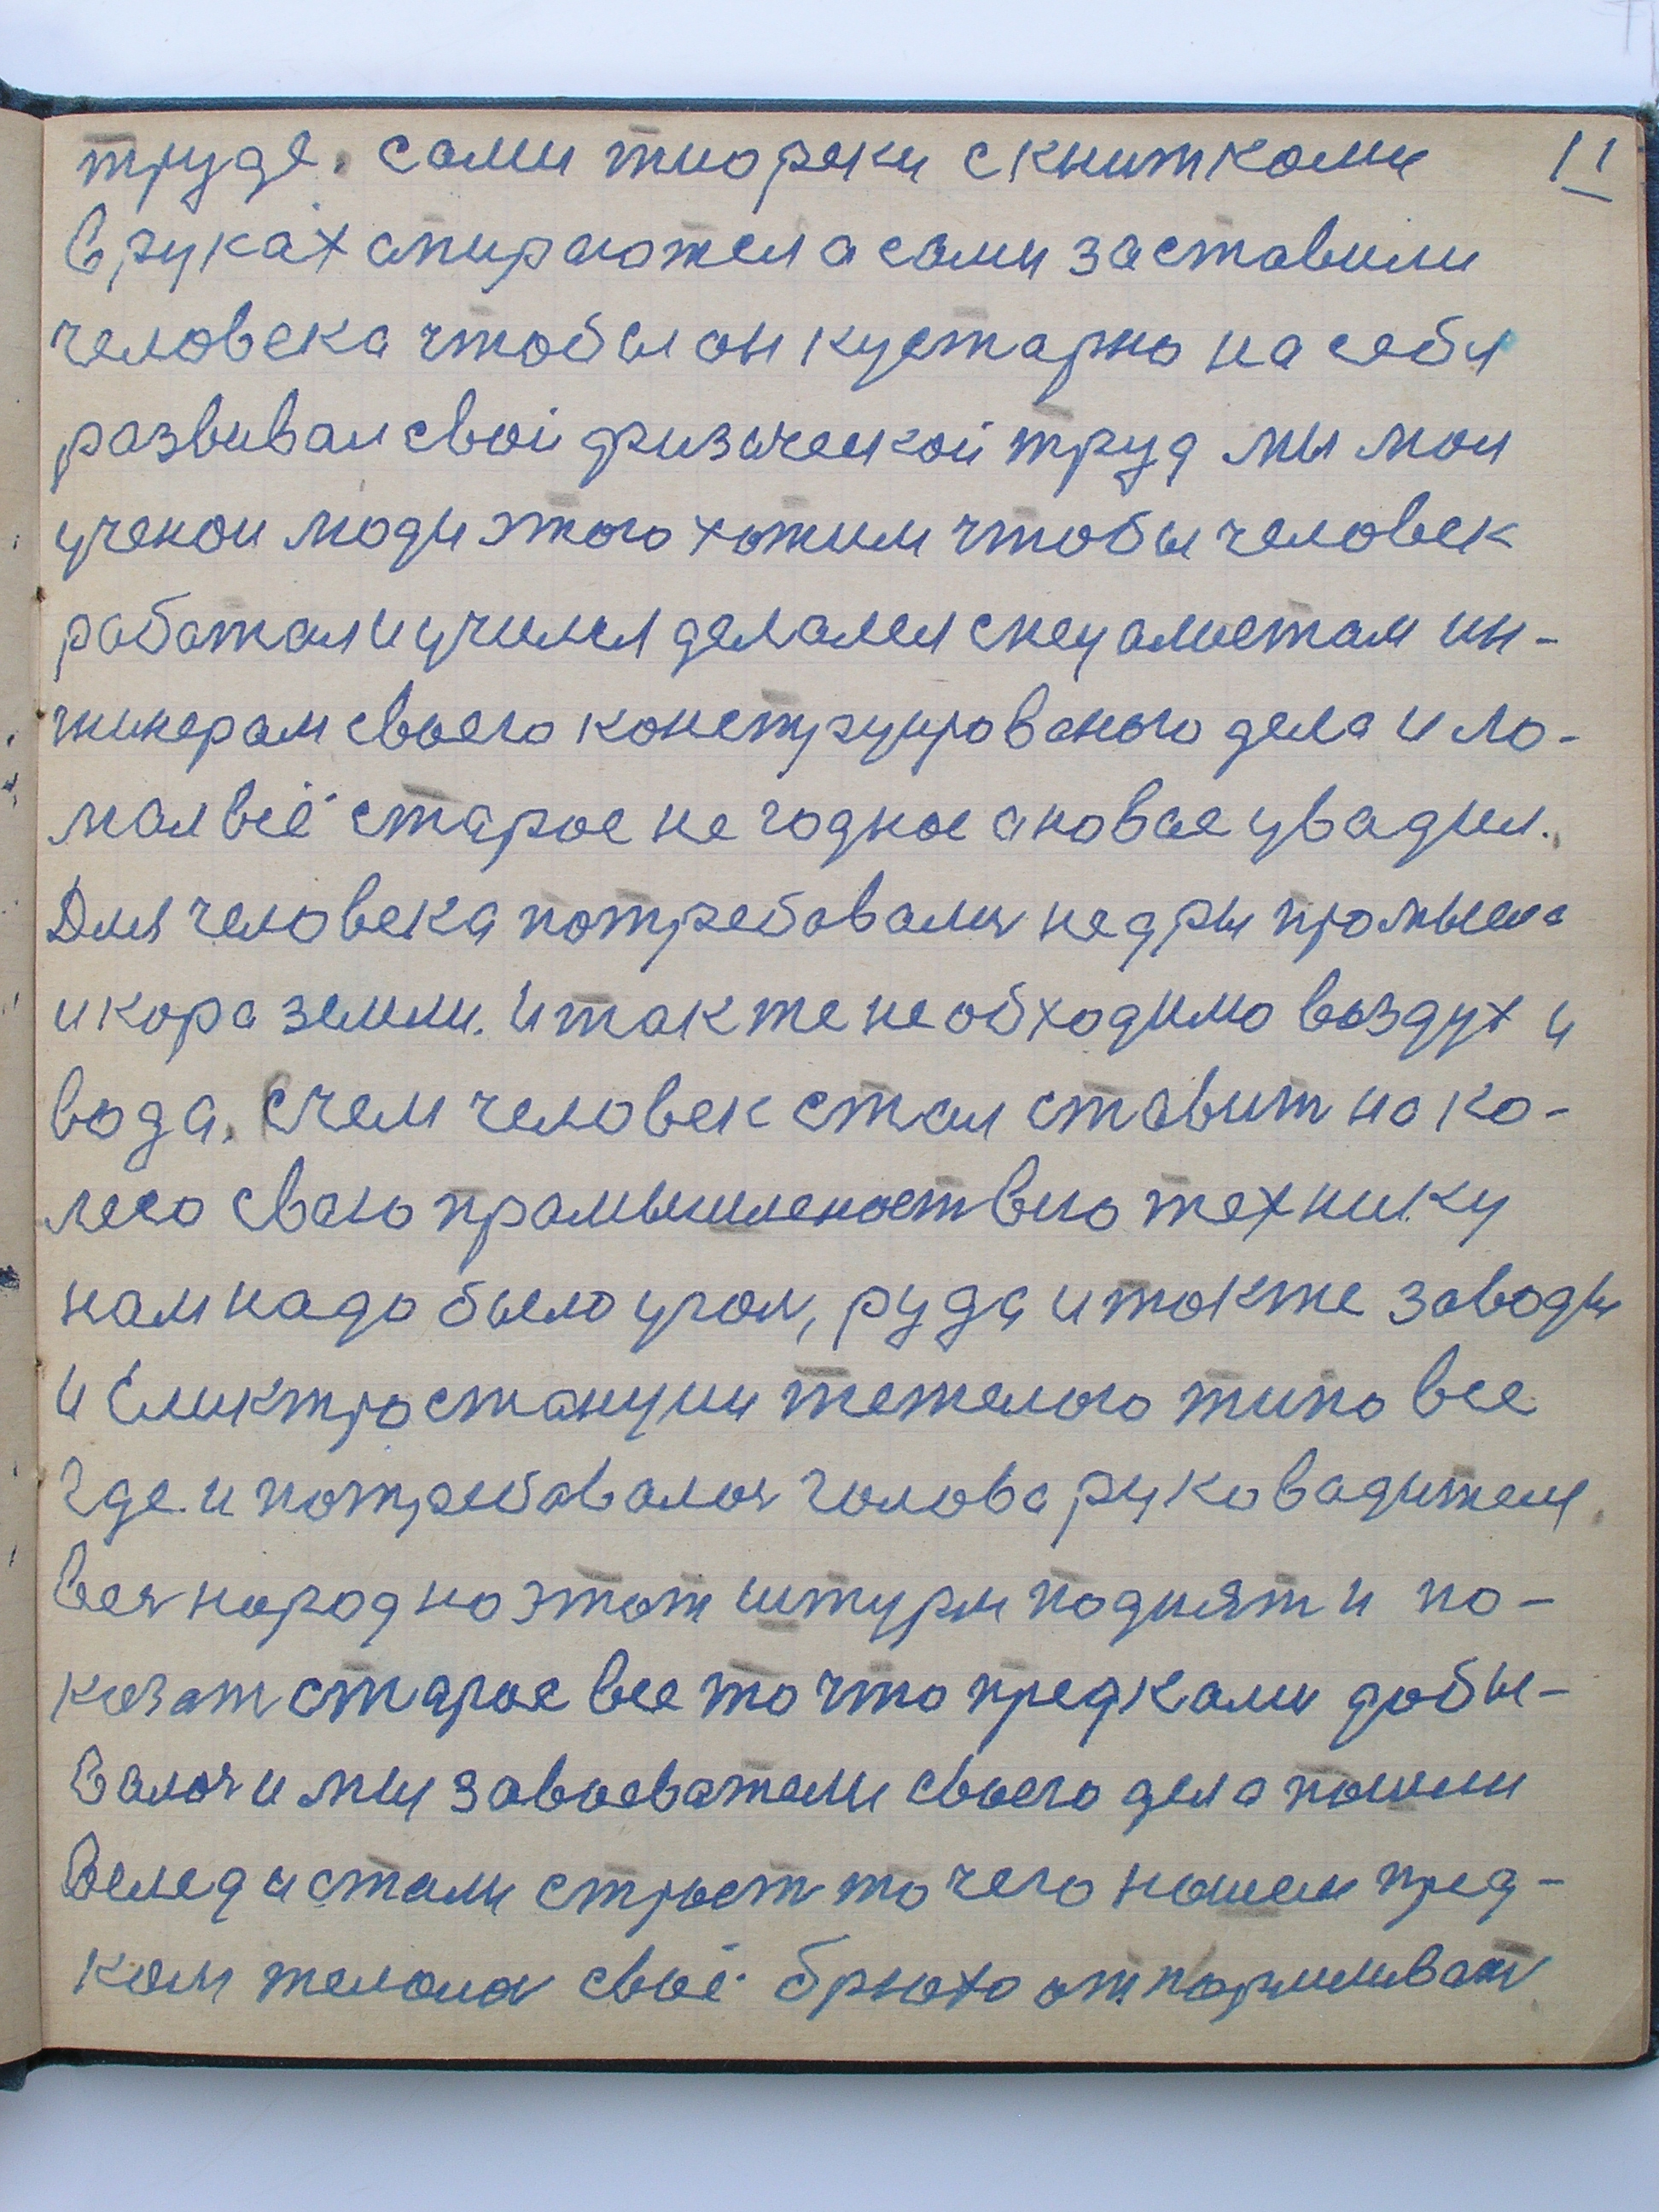 труде. сами тиореки скнитками 11
в руках апираютея а сами заставили
человека чтобы он кустарно на себя
развивал свой физической труд мы мол
ученои люди этого хотим чтобы человек
работал и учился делался спецалистам ин-
жинерам своего конструированого дела и ло-
мал всё старое не годное а новае увадил.
Для человека потребавались недры промысла
и кора земли. И также необходимо воздух и
вода. С чем человек стал ставит на ко-
лесо сваю прамышленаст всю технику
нам надо было угол, руда и также заводы
и Еликтростанции тежелого типа все
где и потребавалась голова руковадителя.
Весь народ на этот штурм поднят и по-
казат старое все то что предками добы-
валось и мы завоеватели своего дела пошли
вслед и стали строет то чего нашем пред-
кам желалось своё брюхо отпормливат